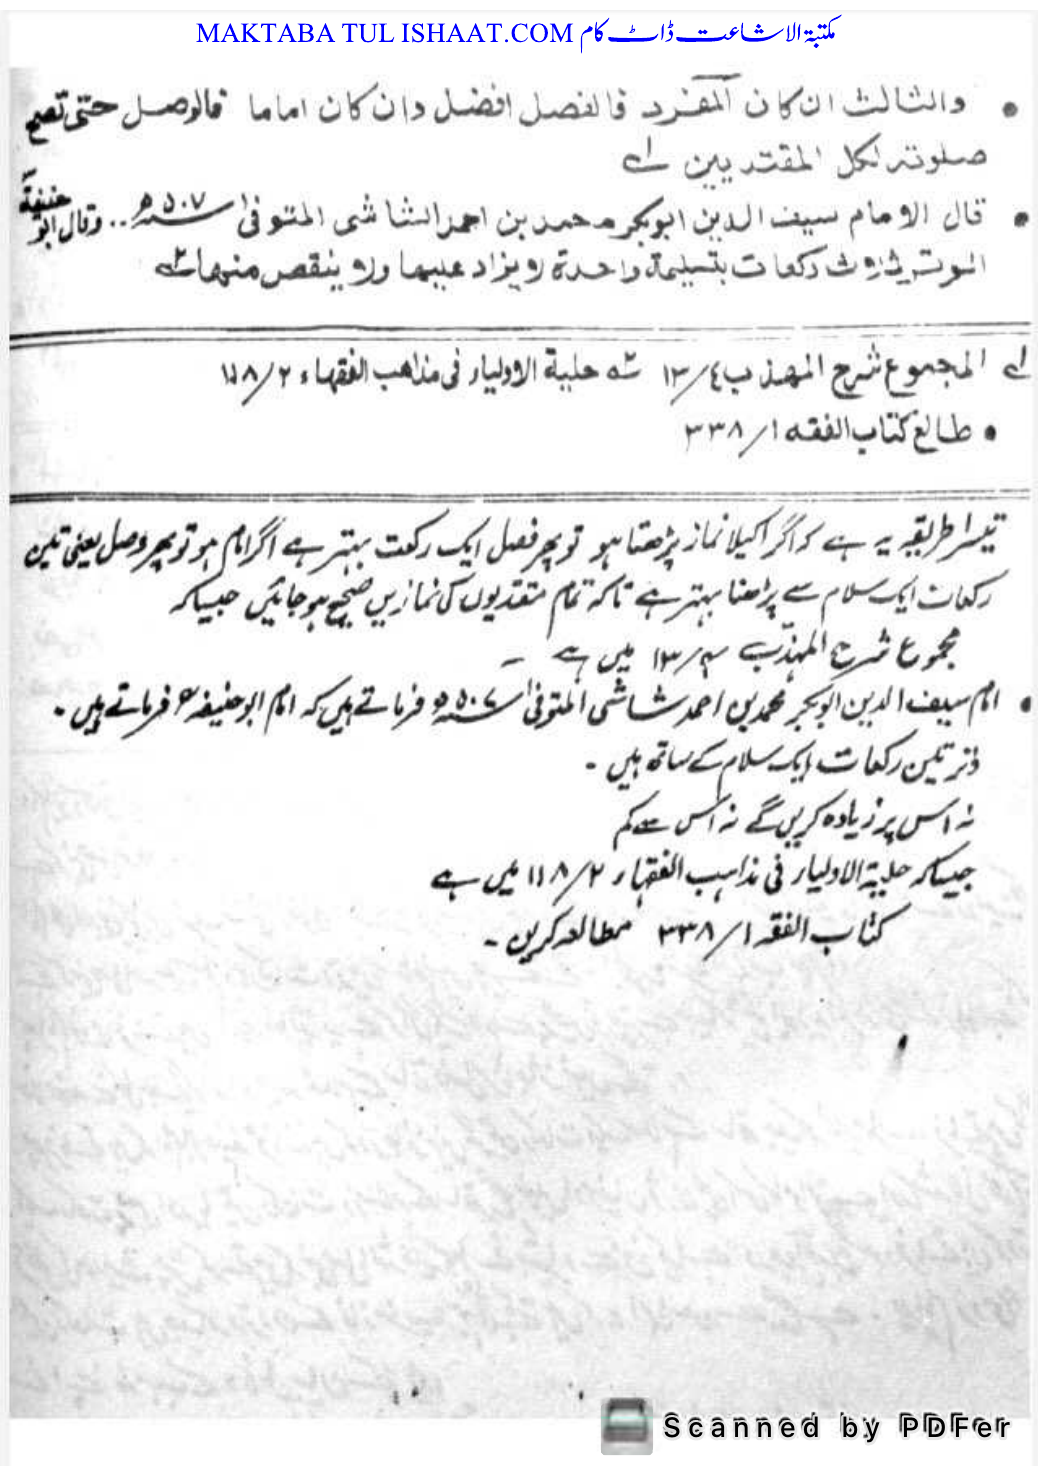 MAKTABA TUL ISHAAT.COM مکتبۃ الاشاعت ڈاٹ کام
• والثالث ان كان المنفرد فالفصل افضل وان كان اماما فالوصل حتى تصح
صلوته لكل المقتديين لے
• قال الامام سيف الدين ابوبكر محمد بن احمد الشاشی المتوفیٰ سنه ۵۰۷ھ .. وقال ابو حنیفة
الوتر ثلاث ركعات بتسليمة واحدة لا يزاد عليها ولا ينقص منها
لے المجموع شرح المهذب ۴/۱۳ حلیة الاولیاء فی مذاهب الفقهاء ۲/۱۱۸
• طالع كتاب الفقه ۱/۳۳۸
تیسرا طریقہ یہ ہے کہ اگر اکیلا نماز پڑھتا ہو تو پھر فصل ایک رکعت بہتر ہے اگر امام ہو تو پھر وصل یعنی تین
رکعات ایک سلام سے پڑھنا بہتر ہے تاکہ تمام مقتدیوں کی نمازیں صحیح ہو جائیں جیسا کہ
مجموع شرح المہذّب ۴/۱۳ میں ہے ۔
• امام سیف الدین ابوبکر محمد بن احمد شاشی المتوفیٰ سنہ ۵۰۷ھ فرماتے ہیں کہ امام ابوحنیفہؒ فرماتے ہیں ۔
وتر تین رکعات ایک سلام کے ساتھ ہیں ۔
نہ اس پر زیادہ کریں گے نہ اس سے کم
جیسا کہ حلیۃ الاولیاء فی مذاہب الفقہاء ۲/۱۱۸ میں ہے
کتاب الفقہ ۱/۳۳۸ مطالعہ کریں ۔
Scanned by PDFer